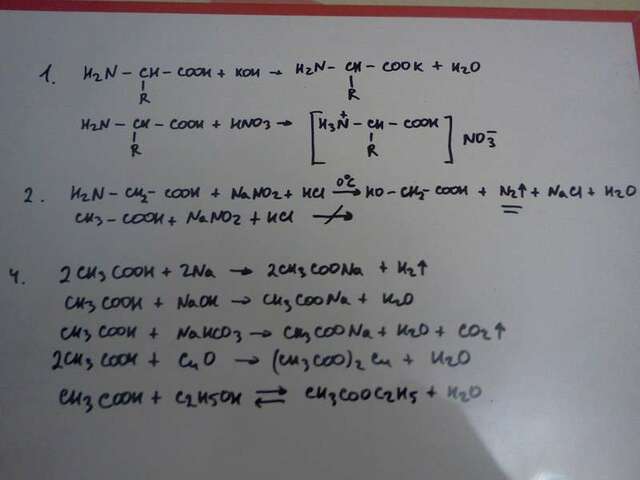 1. H2N – CH – COOH + KOH → H2N – CH – COOK + H2O
R R
H2N – CH – COOH + HNO3 → [H3N⁺ – CH – COOH] NO3⁻
R R
2. H2N – CH2 – COOH + NaNO2 + HCl 0°C → HO – CH2 – COOH + N2↑ + NaCl + H2O
CH3 – COOH + NaNO2 + HCl ↛
4. 2CH3COOH + 2Na → 2CH3COONa + H2↑
CH3COOH + NaOH → CH3COONa + H2O
CH3COOH + NaHCO3 → CH3COONa + H2O + CO2↑
2CH3COOH + CuO → (CH3COO)2Cu + H2O
CH3COOH + C2H5OH ⇌ CH3COOC2H5 + H2O